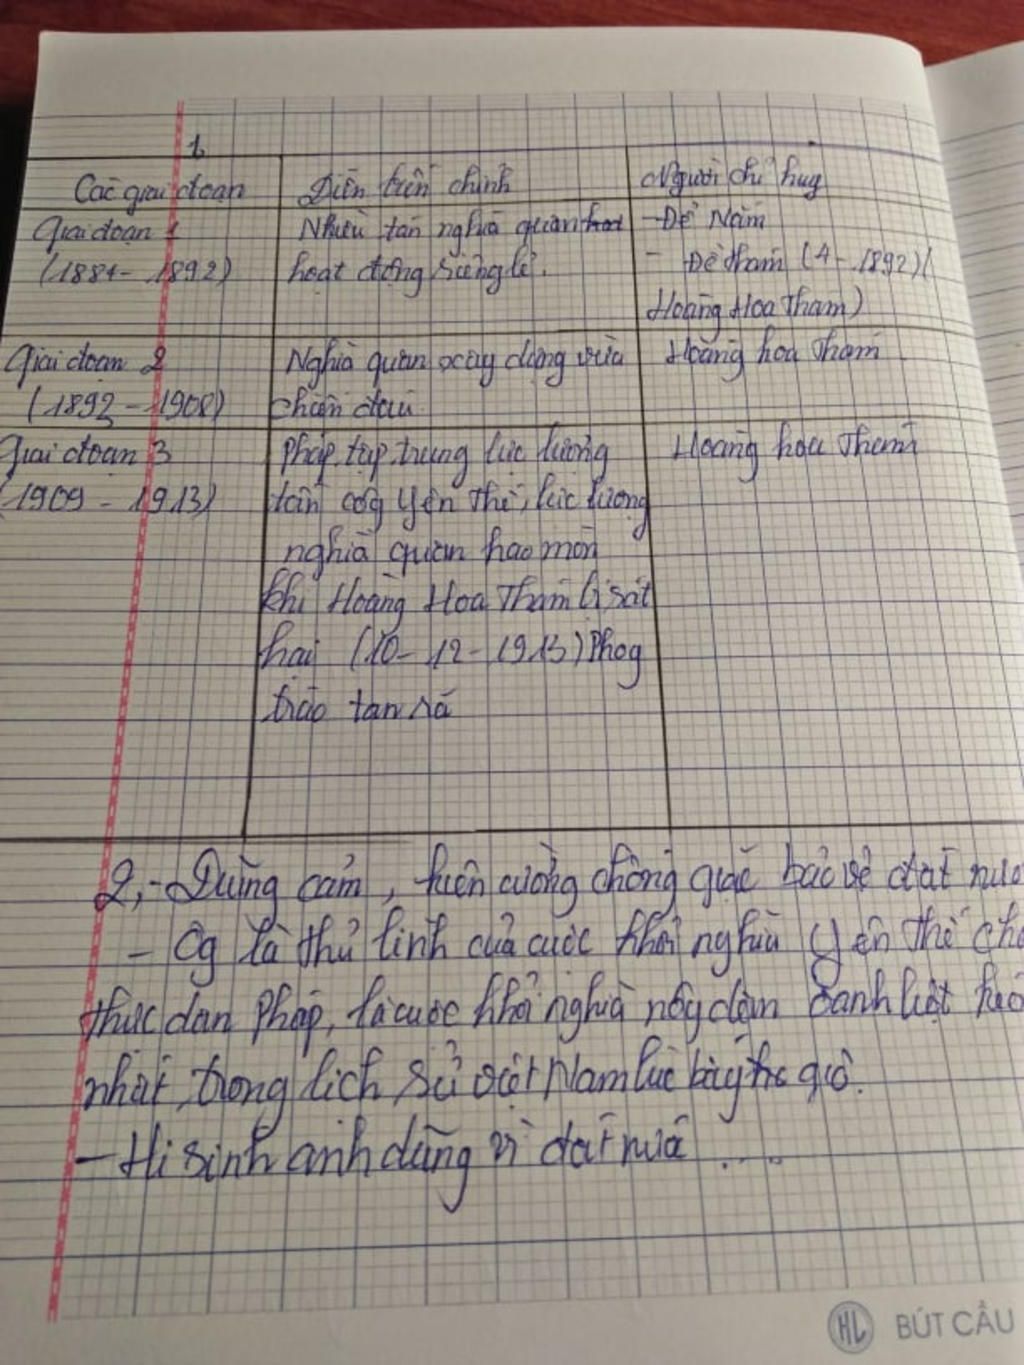 1.
Các giai đoạn
Diễn biến chính
Người chỉ huy
Giai đoạn 1
(1884 - 1892)
Nhiều tán nghĩa quân hoạt
hoạt động riêng lẻ.
- Đề Nắm
- Đề thám (4 - 1892) (
Hoàng Hoa Thám)
Giai đoạn 2
(1892 - 1908)
Nghĩa quân xây dựng vừa
chiến đấu
Hoàng hoa Thám
Giai đoạn 3
(1909 - 1913)
Pháp tập trung lực lượng
tấn côg Yên Thế, lực lượng
nghĩa quân hao mòn
khi Hoàng Hoa Thám bị sát
hại (10 - 12 - 1913) Phog
trào tan rã
Hoàng hoa Thám
2, - Dũng cảm, kiên cường chống giặc bảo vệ đất
- Ôg là thủ lĩnh của cuộc khởi nghĩa Yên Thế
thực dân Pháp, là cuộc khởi nghĩa nôg dân oanh liệt
nhất trong lịch sử việt Nam lúc bấy giờ.
- Hi sinh anh dũng vì đất nước ....
HL BÚT CẦU